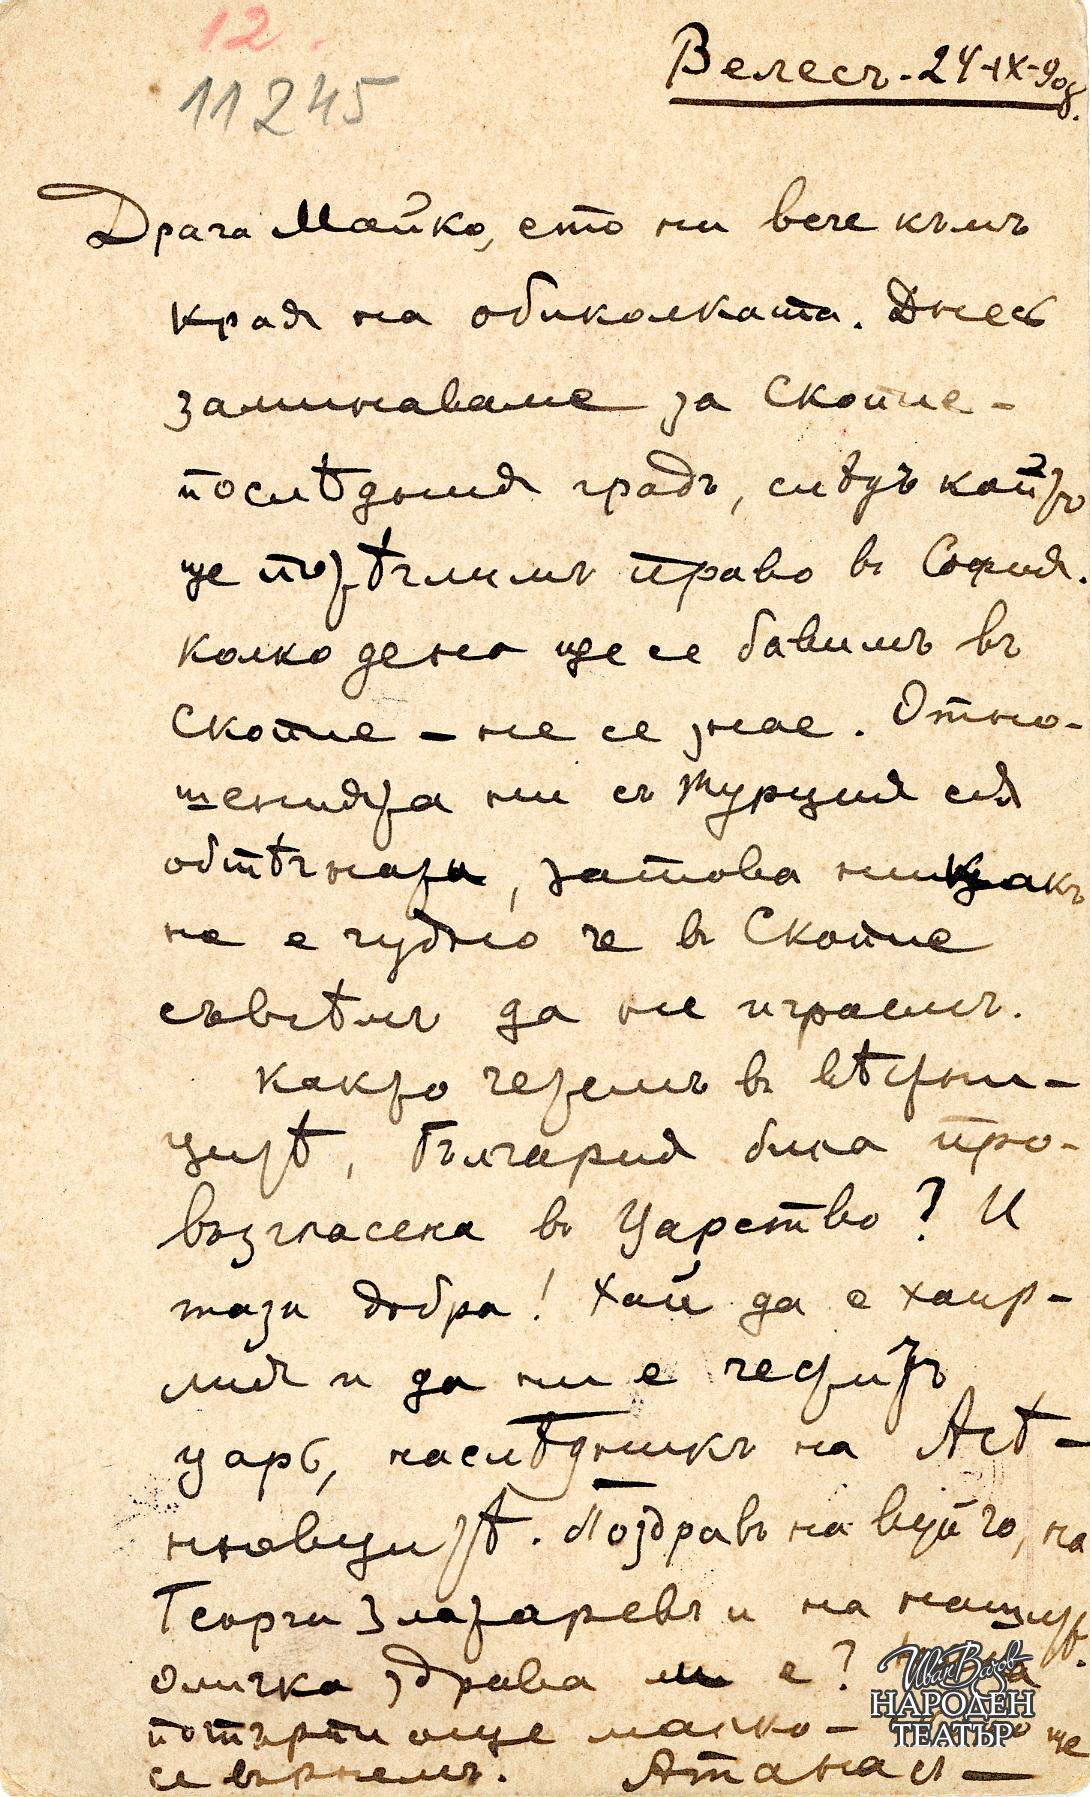 12.
11245
Велесъ - 24-IX-908.
Драга Майко, ето ни вече къмъ
края на обиколката. Днесъ
заминаваме за Скопие -
послѣдния градъ, слѣдъ който
ще потѣглимъ право въ София.
Колко дена ще се бавимъ въ
Скопие - не се знае. Отно-
шенията ни съ Турция ся
обтѣгната, затова никакъ
не е чудно че въ Скопие
съвсѣмъ да не играемъ.
Както четемъ въ вѣстни-
цитѣ, България била про-
възгласена въ Царство? И
тази добра! Хай да е хаир-
лия и да ни е честитъ
царь, наслѣдникъ на Асѣ-
новцитѣ. Поздравъ на вуйчо, на
Георги Златаревъ и на нашитѣ.
Оличка здрава ли е?
потърпи още малко - ще
се върнемъ. Атанасъ
Иван Вазов
НАРОДЕН
ТЕАТЪР